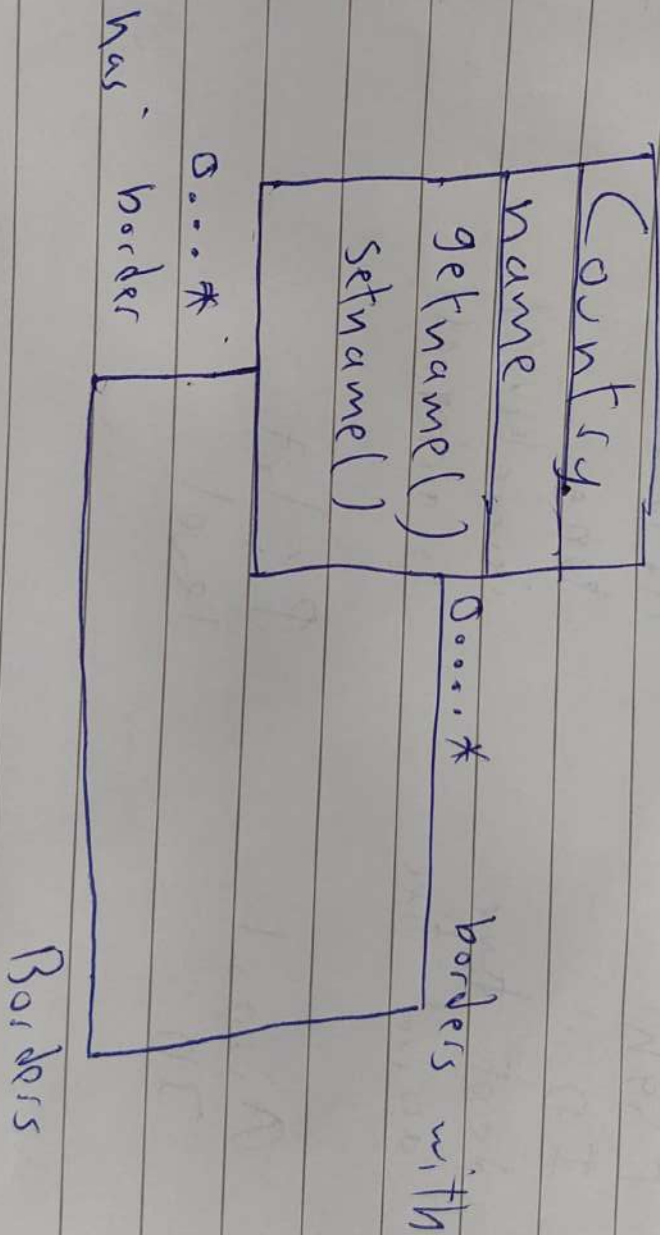 Country
name
getname()
setname()
0....*
borders with
0...*
has border
Borders